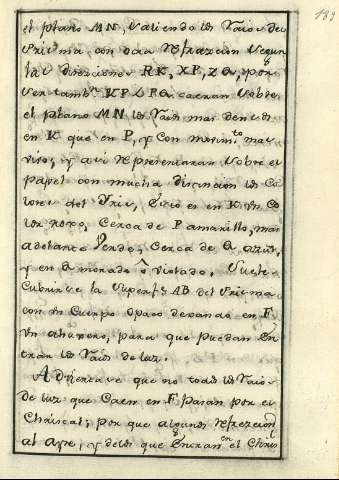 189
el plano MN, saliendo los Raios del
Prisma, con otra refraccion segun
las direcciones RK, XP, ZQ, y por
ser tambn. KP y PQ caeran sobre
el plano MN los Raios mas densos
en K que en P, y con movimto. mas
vivo; y asi representaran sobre el
papel con mucha distincion los Co
lores del Iris, Esto es en K un Co
lor roxo, cerca de P amarillo, mas
adelante Verde, Cerca de Q azul,
y en Q morado ô violado, Suele
Cubrirse la superfe. AB del Prisma
con un Cuerpo opaco dexando en F
un ahuxero, para que puedan En
trar los Raios de luz.
Adviertase que no todos los Raios
de luz que Caen en F pasan por el
Christal; por que algunos refreccion
al Ayre, y de los que Entran en el Chris